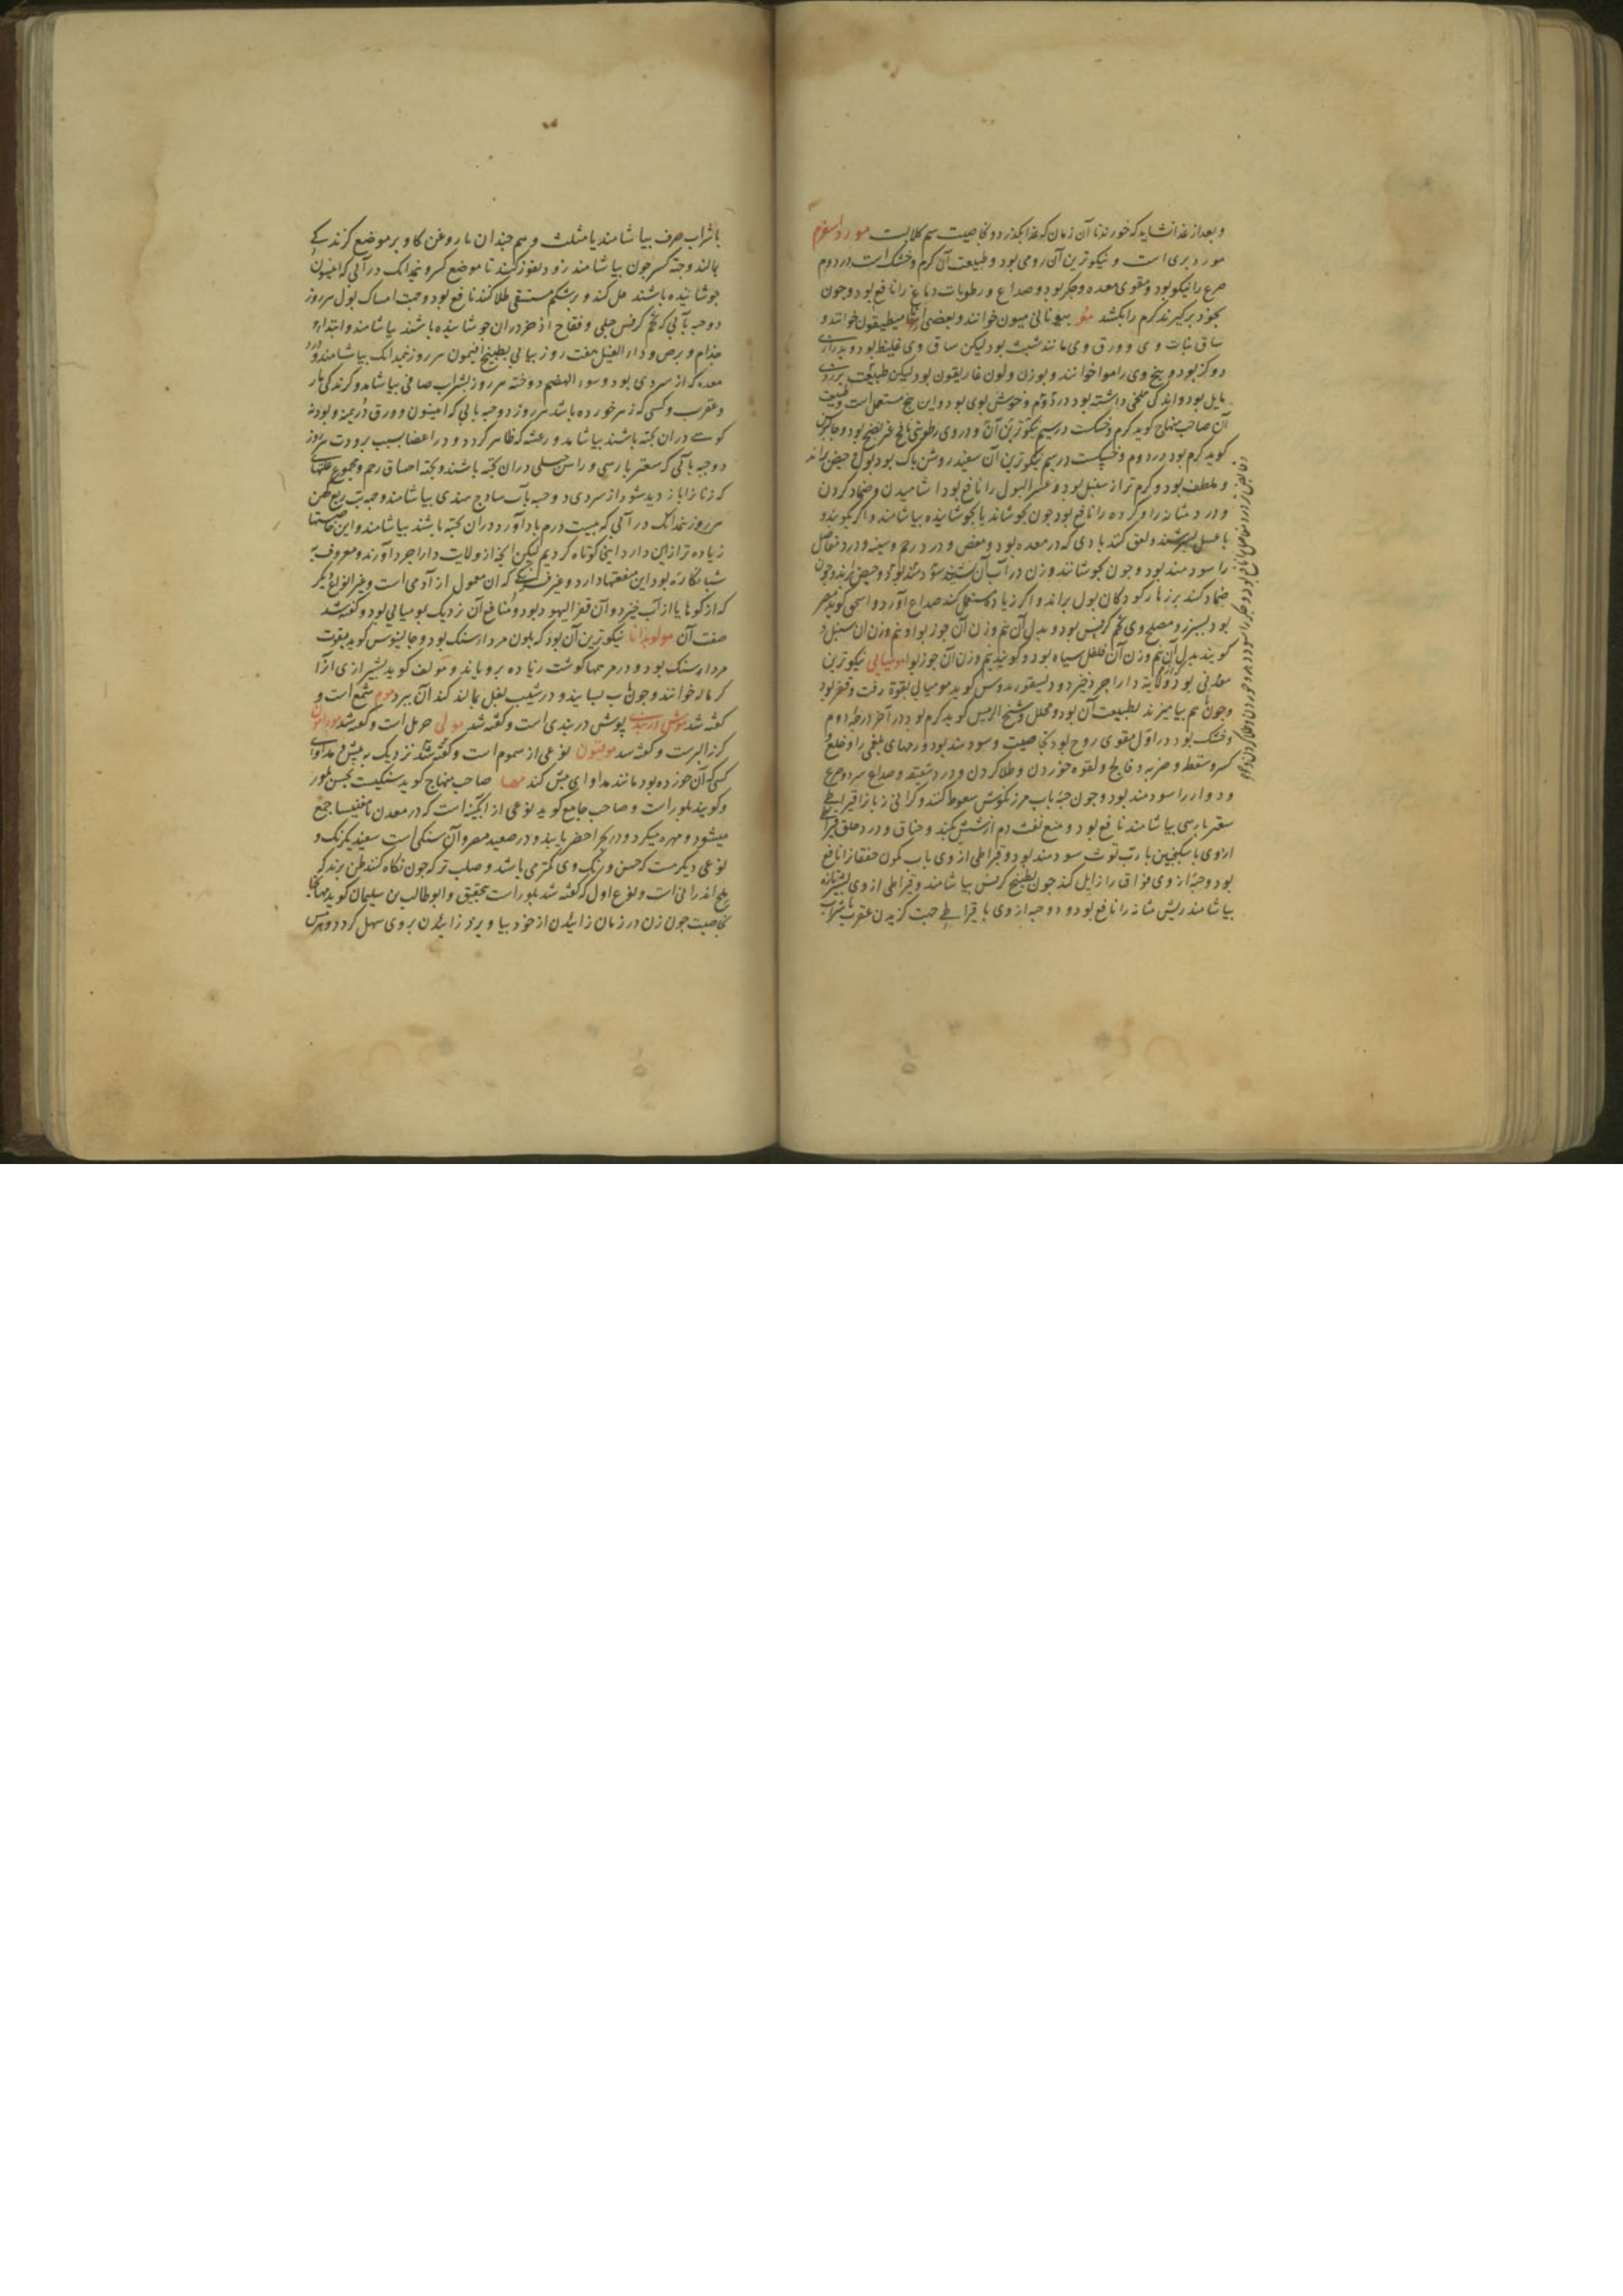 و بعد از غذا نشاید که خورند تا آن زمان که غذا بگذرد و بخاصیت سم کلابست مورد اسفرم
مورد بری است و نیکوترین آن رومی بود و طبیعت آن کرم و خشک است در دوم
صرع را نیکو بود و مقوی معده و جکر بود و صداع و رطوبات دماغ را نافع بود و چون
بخود برکیرند کرم را بکشد مو بیونانی میون خوانند و بعضی میطیقون خوانند و
ساق نبات وی و ورق وی مانند شبت بود لیکن ساق وی غلیظ بود و بدرازی
دو کز بود و بیخ وی را موا خوانند و بوزن و لون غاریقون بود لیکن طبیعت بزردی
مایل بود و اندکی تلخی داشته بود در دوم و خوش بوی بود و این بیخ مستعمل است و طبیعت
آن صاحب منهاج کوید کرم و خشکست در سیم نیکوترین آن و در وی رطوبتی نافخ غیر نضج بود و جالینوس
کوید کرم بود در دوم و خشکست در سیم نیکوترین آن سفید روشن پاک بود بول و حیض براند
و ملطف بود و کرم تر از سنبل بود و عسر البول را نافع بود آشامیدن و ضماد کردن
و درد مثانه را و کرده را نافع بود چون بجوشاند یا نجوشانیده بیاشامند و اکر بکوبند و
با عسل بسرشند و لعق کنند بادی که در معده بود و مغص و درد رحم و سینه و درد مفاصل
را سودمند بود و چون بجوشانند و زن در آب آن نشیند سودمند بود و حیض براند و چون
ضماد کنند بر زهار کودکان بول براند و اکر زیاد مستعمل کنند صداع آورد و اسحق کوید مضر
بود بسپرز و مصلح وی تخم کرفس بود و بدل آن نیم وزن آن جوز بوا و نیم وزن آن سنبل و
کویند بدل آن نیم وزن آن فلفل سیاه بود و کویند نیم وزن آن جوز بوا مومیایی نیکوترین
معدنی بود و از ولایة داراجرد خیزد و دیسقوریدوس کوید مومیایی بقوة زفت و قفر بود
و چون بهم بیامیزند بطبیعت آن بود و محلل و شیخ الرئیس کوید کرم بود در آخر درجه دوم
و خشک بود در اول مقوی روح بود بخاصیت و سودمند بود ورمهای بلغمی را و خلع و
کسر و سقطه و ضربه و فالج و لقوه خوردن و طلا کردن و درد شقیقه و صداع سرد و صرع
و دوار را سودمند بود و چون حبة بآب مرزنکوش سعوط کنند و کرانی زبان را قیراطی
سعتر پارسی بیاشامند نافع بود و منع نفث دم از شش بکند و خناق و درد حلق قیراطی
از وی با سکنجبین با رب توث سودمند بود و قیراطی از وی بآب کمون خفقان را نافع
بود و حبة از وی فواق را زایل کند چون بطبیخ کرفس بیاشامند و قیراطی از وی بشیر تازه
بیاشامند ریش مثانه را نافع بود و دو حبه از وی یا قیراطی جهت کزیدن عقرب بشراب
با شراب صرف بیاشامند یا مثلث و هم چندان با روغن کاو بر موضع کزندکی
بمالند و جهة کسر چون بیاشامند زود نفوذ کند تا موضع کسر و نیم دانک در آبی که افیتمون
جوشانیده باشند حل کند و بر شکم مستسقی طلا کند نافع بود و جهت امساک بول هر روز
دو حبه بآبی که تخم کرفس جبلی و فقاح اذخر در آن جوشانیده باشند بیاشامند و ابتداء
جذام و برص و داء الفیل هفت روز پیاپی بطبیخ افتیمون هر روز نیم دانک بیاشامند و درد
معده که از سردی بود و سوء الهضم دو حبه هر روز بشراب صافی بیاشامد و کزندکی مار
و عقرب و کسی که زهر خورده باشد هر روز دو حبه بآبی که انیسون و ورق دریمنه و پودنه
کوهی در آن پخته باشند بیاشامد و رعشه که ظاهر کردد و در اعضا بسبب برودت هر روز
دو حبه بآبی که سعتر پارسی و راسن جبلی در آن پخته باشند و جهة احتناق رحم و مجموع علتهای
که زنانرا باز دید شود از سردی دو حبه بآب ساذج هندی بیاشامند و جهة تب ربع کهن
هر روز نیم دانک در آبی که بیست درم بادآورد در آن پخته باشند بیاشامند و این خاصیتها
زیاده تر ازین دارد اینجا کوتاه کردیم لیکن آنچه از ولایت داراجرد آورند و معروف به
شبانکاره بود این منفعتها دارد و غیر فرنکی که آن معمول از آدمی است و غیر انواع دیکر
که از کوهها یا از آب خیزد و آن قفر الیهود بود و منافع آن نزدیک بمومیایی بود و کفته شد
صفت آن مولوبدانا نیکوترین آن بود که بلون مرداسنک بود و جالینوس کوید بقوت
مرداسنک بود و در مرهمها کوشت زیاده برویاند و مولف کوید بشیرازی آنرا
کرماله خوانند و چون بآب بسایند و در شیب بغل بمالند کند آن ببرد موم شمع است و
کفته شد موش دربندی پوش دربندی است و کفته شد مولی حرمل است و کفته شد
کزاز البرست و کفته شد مولیون نوعی از سموم است و کفته شد نزدیک به بیش و مداوای
کسی که آن خورده بود مانند مداوای بیش کند مها صاحب منهاج کوید سنکیست بجنس بلور
و کویند بلور است و صاحب جامع کوید نوعی از آبکینه است که در معدن مغنیسا جمع
میشود و مهره میکردد و در بحر اخضر یابند و در صعید مصر و آن سنکی است سفید یکرنک و
نوعی دیکر هست که حسن و رنک وی کمتر می باشد و صلب تر که چون نکاه کنند ظن برند که
ملح اندرانی است و نوع اول که کفته شد بلور است بتحقیق و ابو طالب بن سلیمان کوید مها
بخاصیت چون زن در زمان زائیدن از خود بیاویزد زائیدن بر وی سهل کردد و هرمس